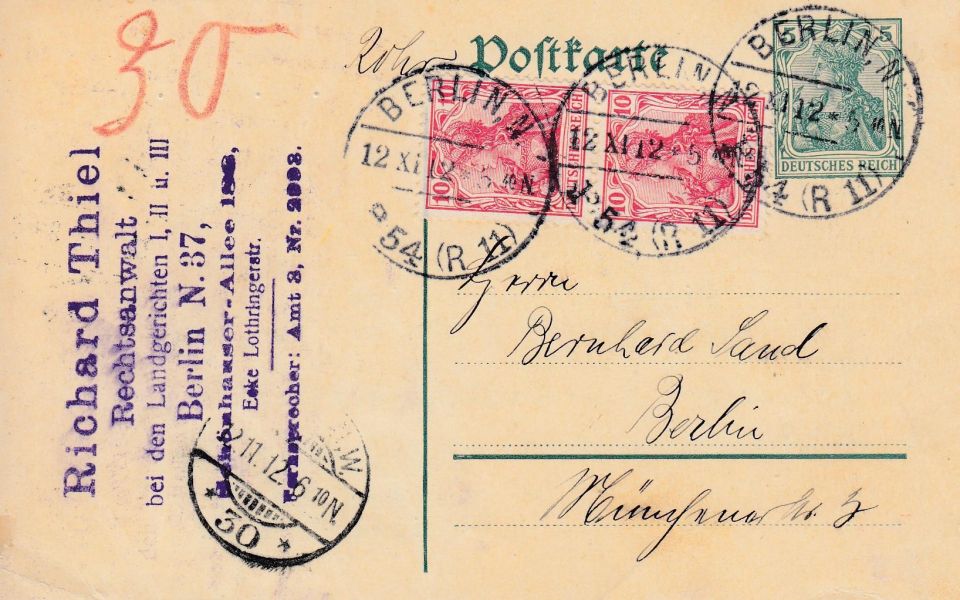 30
Rohr
Postkarte
5 5
DEUTSCHES REICH
10 10
DEUTSCHES REICH
10 10
DEUTSCHES REICH
BERLIN, N.
12 XI 12 * 5
54 (R 11)
BERLIN, N.
12 XI 12 * 5
54 (R 11)
BERLIN, N.
12 XI 12 * 5
54 (R 11)
Richard Thiel
Rechtsanwalt
bei den Landgerichten I, II u. III
Berlin N. 37,
Schönhauser-Allee
Ecke Lothringerstr.
Fernsprecher: Amt 3, Nr. 2993.
W
12.11.12.6 10 N.
* 30 *
Herrn
Bernhard Sand
Berlin
Münchener Str. 3